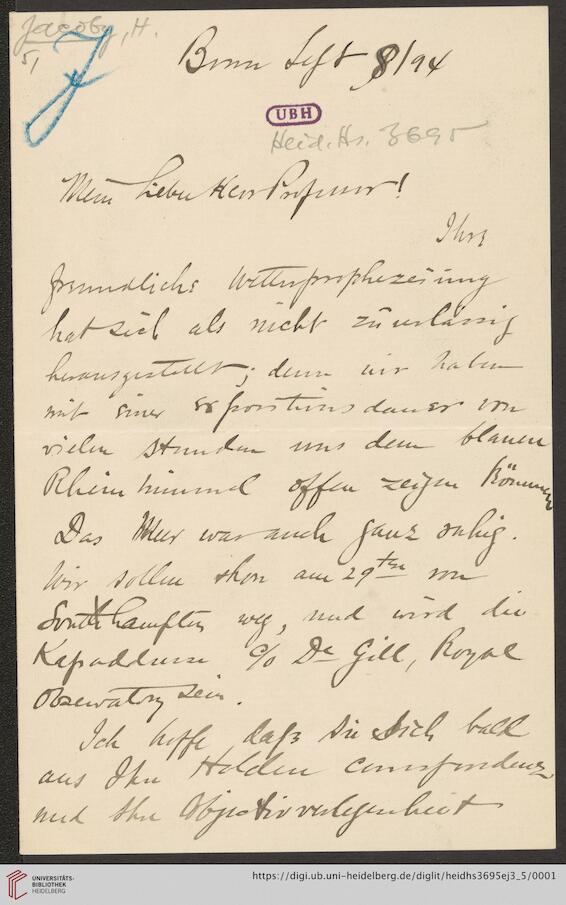 Jacoby, H.
5,
J
Bonn Sept 8/94
UBH
Heid. Hs. 3695
Mein lieber Herr Professor!
Ihre
freundliche Wetterprophezeiung
hat sich als nicht zuverlässig
herausgestellt; denn wir haben
mit einer Expositionsdauer von
vielen Stunden uns dem blauen
Rheinhimmel offen zeigen können
Das Meer war auch ganz ruhig.
Wir sollen schon am 29ten von
Southhampton weg, und wird die
Kapaddresse c/o Dr Gill, Royal
Observatory sein.
Ich hoffe daß Sie Sich bald
aus Ihr Holden Correspondenz
und Ihr Objectivverlegenheit
UNIVERSITÄTS-
BIBLIOTHEK
HEIDELBERG
https://digi.ub.uni-heidelberg.de/diglit/heidhs3695ej3_5/0001